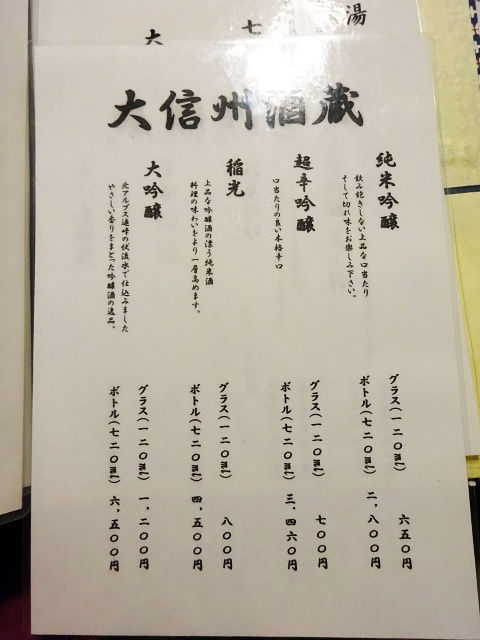 湯
七
大
大信州酒蔵
純米吟醸
飲み飽きしない上品な口当たり
そして切れ味をお楽しみ下さい。
グラス(一二〇ml) 六五〇円
ボトル(七二〇ml) 二、八〇〇円
超辛吟醸
口当たりの良い本格辛口
グラス(一二〇ml) 七〇〇円
ボトル(七二〇ml) 三、四六〇円
稲光
上品な吟醸酒の漂う純米酒
料理の味わいをより一層高めます。
グラス(一二〇ml) 八〇〇円
ボトル(七二〇ml) 四、五〇〇円
大吟醸
北アルプス連峰の伏流水で仕込みました
やさしい香りをまとった吟醸酒の逸品。
グラス(一二〇ml) 一、二〇〇円
ボトル(七二〇ml) 六、五〇〇円